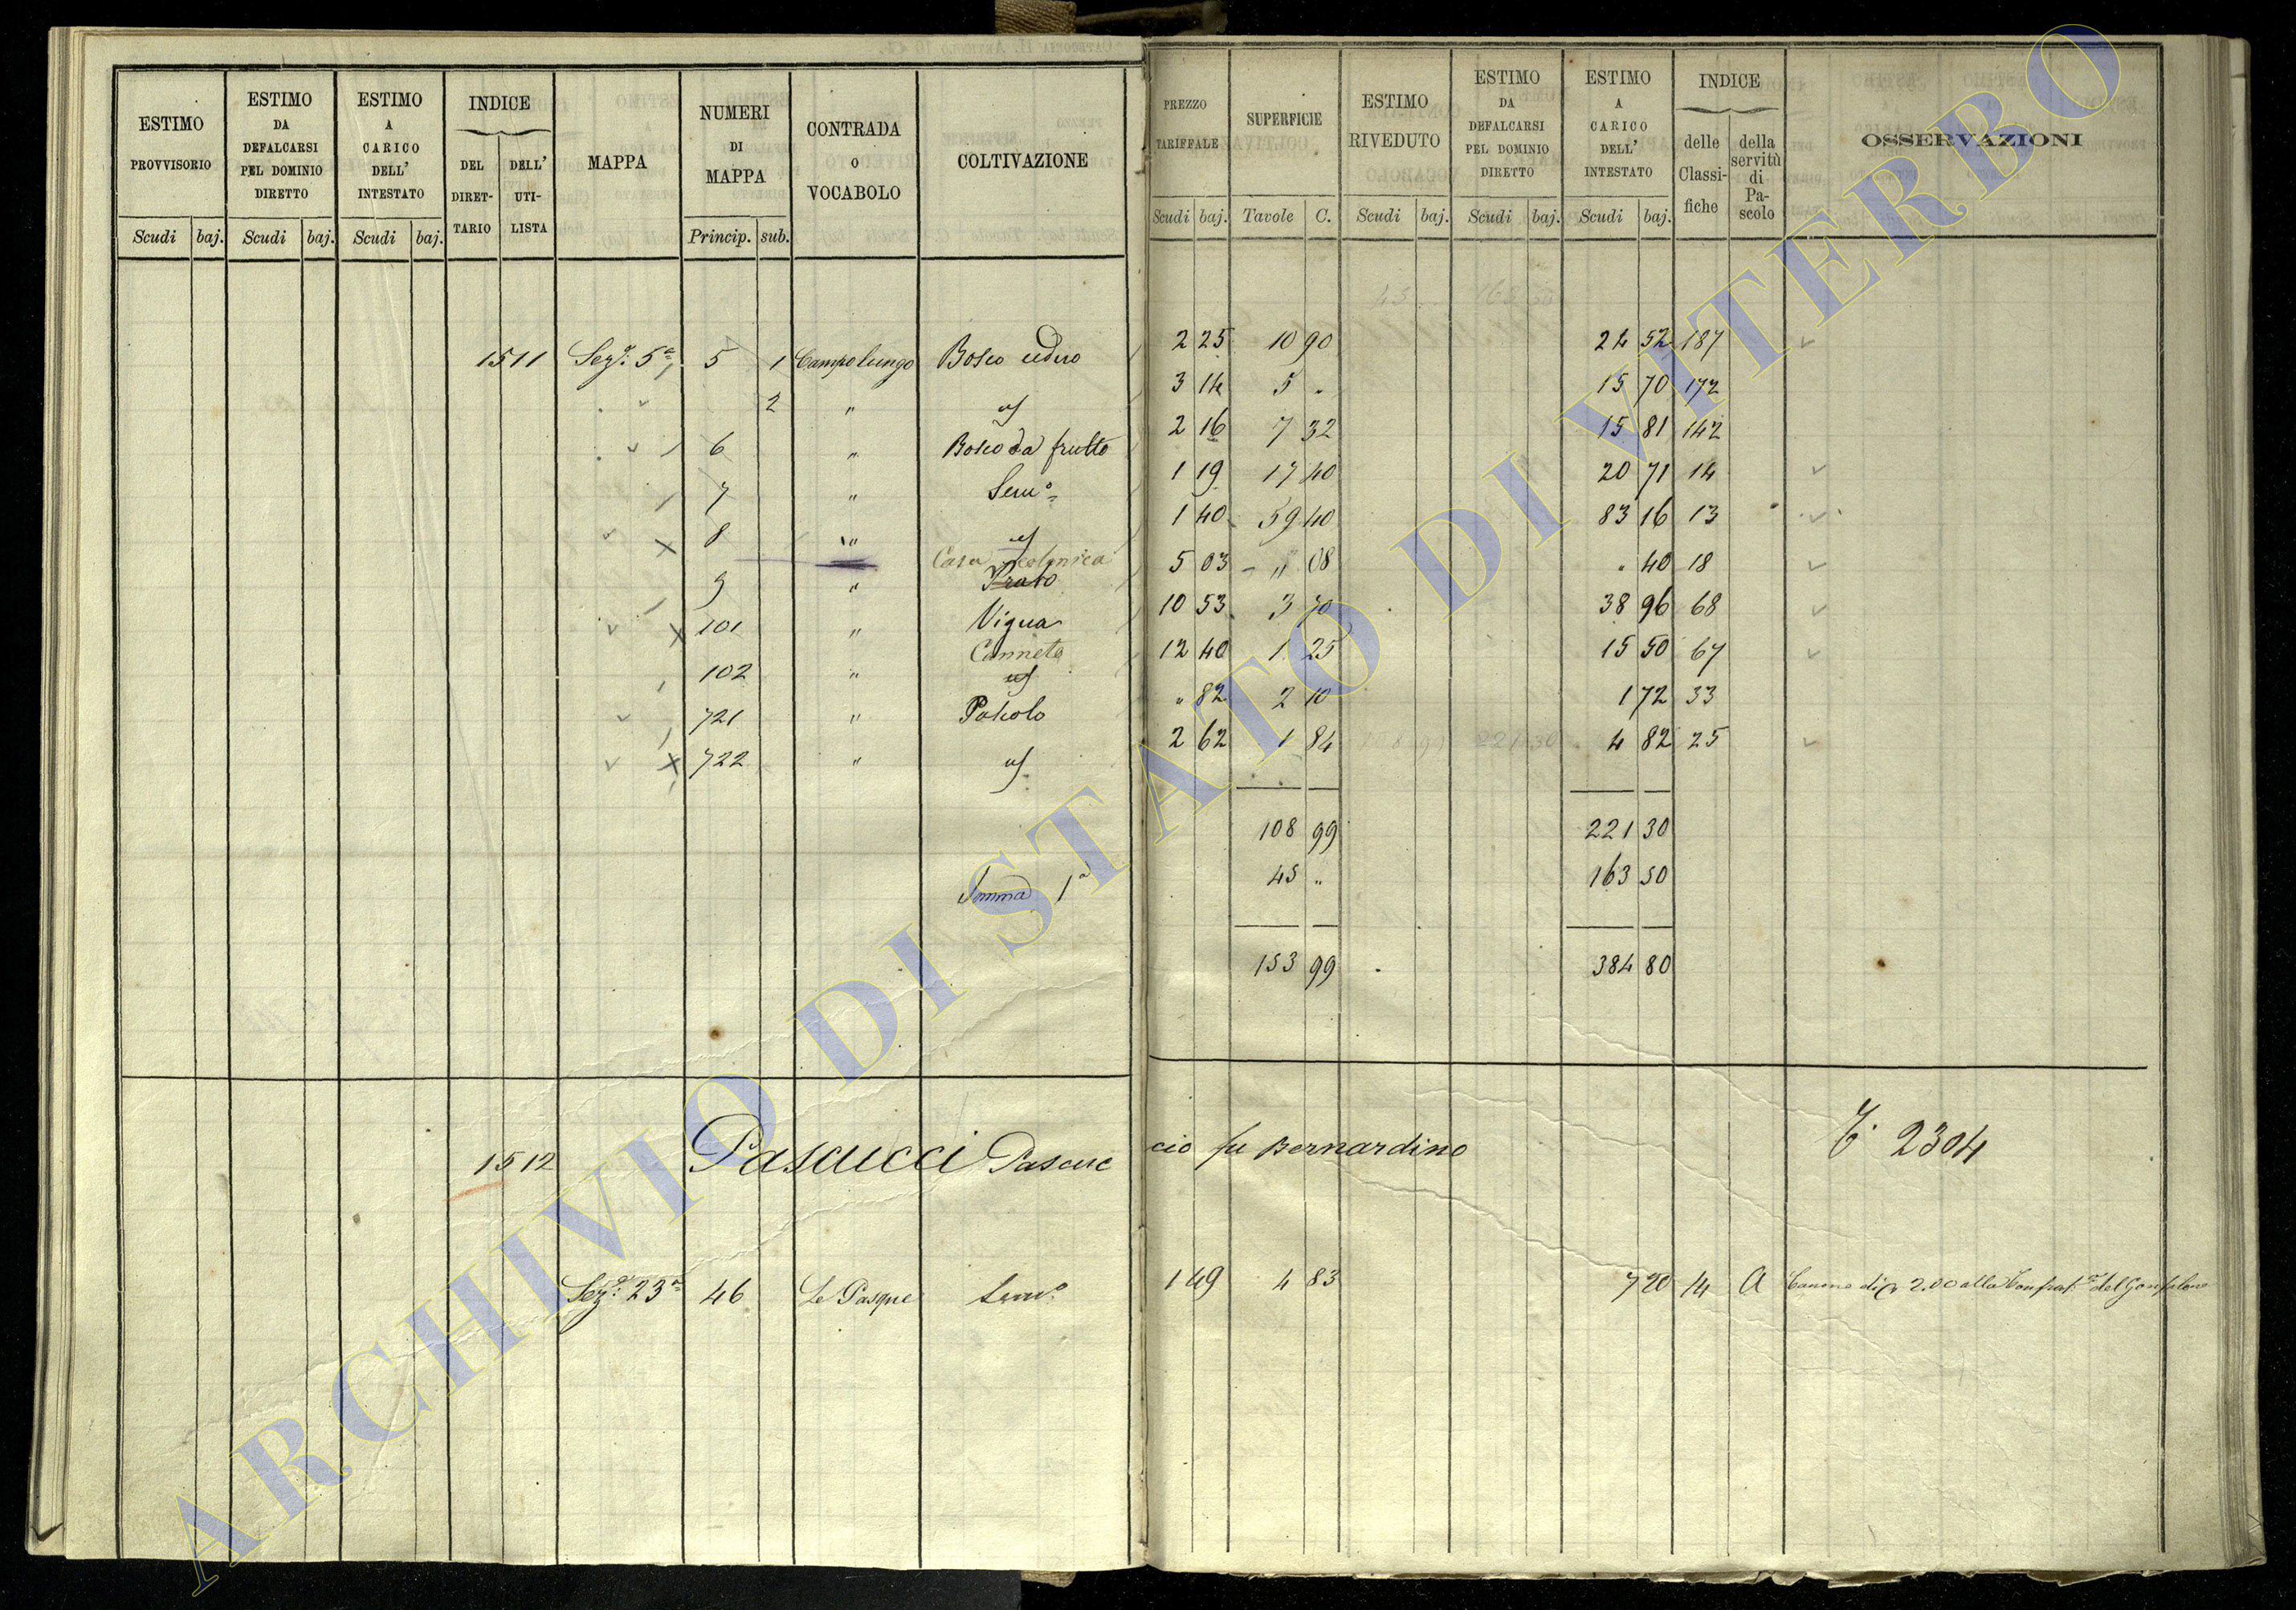 ESTIMO PROVVISORIO | ESTIMO DA DEFALCARSI PEL DOMINIO DIRETTO | ESTIMO A CARICO DELL' INTESTATO | INDICE DEL DIRETTARIO | DELL' UTILISTA | MAPPA | NUMERI DI MAPPA | CONTRADA O VOCABOLO | COLTIVAZIONE | PREZZO TARIFFALE | SUPERFICIE | ESTIMO RIVEDUTO | ESTIMO DA DEFALCARSI PEL DOMINIO DIRETTO | ESTIMO A CARICO DELL' INTESTATO | INDICE delle Classifiche | della servitù di Pascolo | OSSERVAZIONI
Scudi baj. Scudi baj. Scudi baj. Princip. sub. Scudi baj. Tavole C. Scudi baj. Scudi baj. Scudi baj.
1511 Sez.e 5a 5 1 Campolungo Bosco ceduo 2 25 10 90 24 52 187
2 " id 3 14 5 " 15 70 172
6 " Bosco da frutto 2 16 7 32 15 81 142
7 " Sem.o 1 19 17 40 20 71 14
8 " id 1 40 59 40 83 16 13
Casa colonica
9 " Prato 5 03 " 08 " 40 18
101 " Vigna 10 53 3 70 38 96 68
Canneto
102 " id 12 40 1 25 15 50 67
721 " Pascolo " 82 2 10 1 72 33
722 " id 2 62 1 84 4 82 25
108 99 221 30
Somma 1a 45 " 163 50
153 99 384 80
1512 Pascucci Pascuccio fu Bernardino 2304
Sez.e 23a 46 Le Pasque Sem.o 1 49 4 83 7 20 14 A Canone di 2.00 alla Confrat.a del Gonfalone
ARCHIVIO DI STATO DI VITERBO